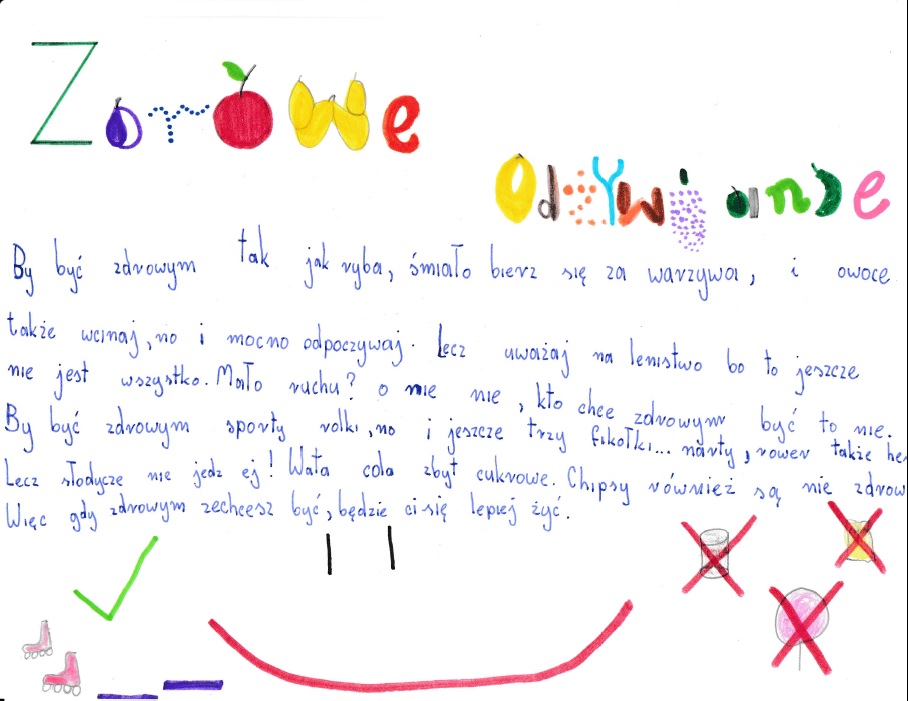 Zdrowe
Odżywianie
By być zdrowym tak jak ryba, śmiało bierz się za warzywa, i owoce
także wcinaj, no i mocno odpoczywaj. Lecz uważaj na lenistwo bo to jeszcze
nie jest wszystko. Mało ruchu? o nie nie, kto chce zdrowym być to nie.
By być zdrowym sporty rolki, no i jeszcze trzy fikołki... narty, rower także he
Lecz słodycze nie jedz ej! Wata cola zbyt cukrowe. Chipsy również są nie zdrow
Więc gdy zdrowym zechcesz być, będzie ci się lepiej żyć.